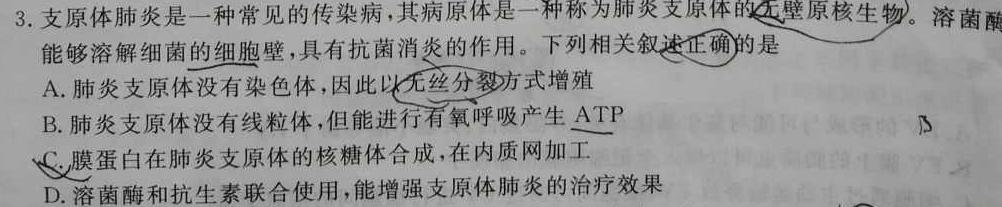 3. 支原体肺炎是一种常见的传染病,其病原体是一种称为肺炎支原体的无壁原核生物。溶菌酶
能够溶解细菌的细胞壁,具有抗菌消炎的作用。下列相关叙述正确的是
A. 肺炎支原体没有染色体,因此以无丝分裂方式增殖
B. 肺炎支原体没有线粒体,但能进行有氧呼吸产生 ATP
B
C. 膜蛋白在肺炎支原体的核糖体合成,在内质网加工
D. 溶菌酶和抗生素联合使用,能增强支原体肺炎的治疗效果